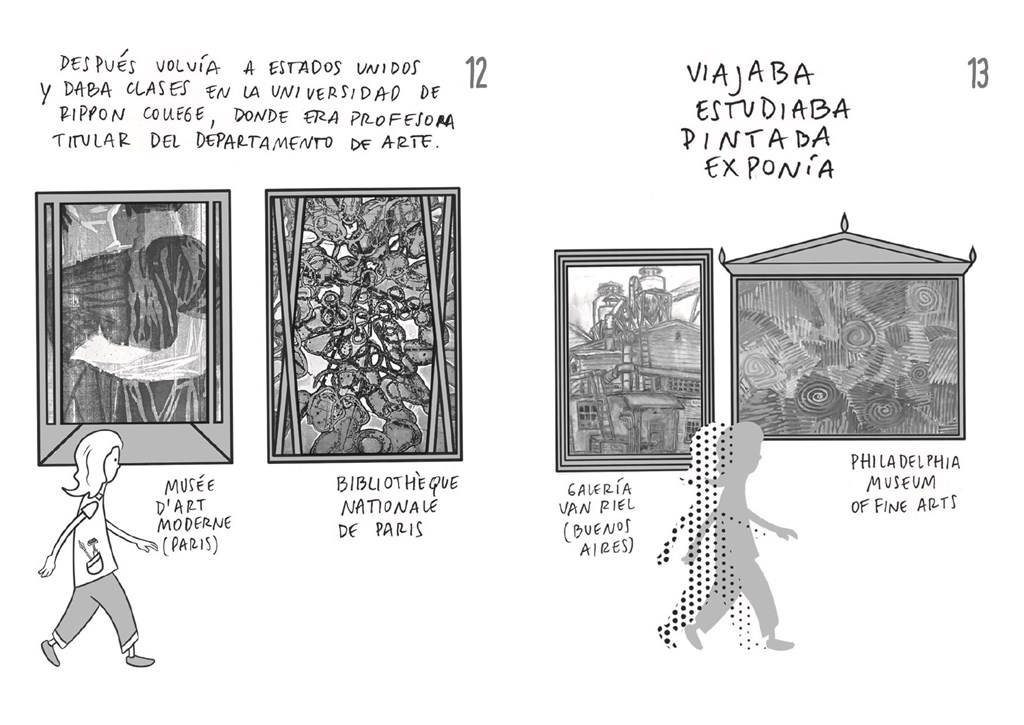 DESPUÉS VOLVÍA A ESTADOS UNIDOS
Y DABA CLASES EN LA UNIVERSIDAD DE
RIPPON COLLEGE, DONDE ERA PROFESORA
TITULAR DEL DEPARTAMENTO DE ARTE.
12
MUSÉE
D'ART
MODERNE
(PARIS)
BIBLIOTHÈQUE
NATIONALE
DE PARIS
VIAJABA
ESTUDIABA
PINTABA
EXPONÍA
13
GALERÍA
VAN RIEL
(BUENOS
AIRES)
PHILADELPHIA
MUSEUM
OF FINE ARTS